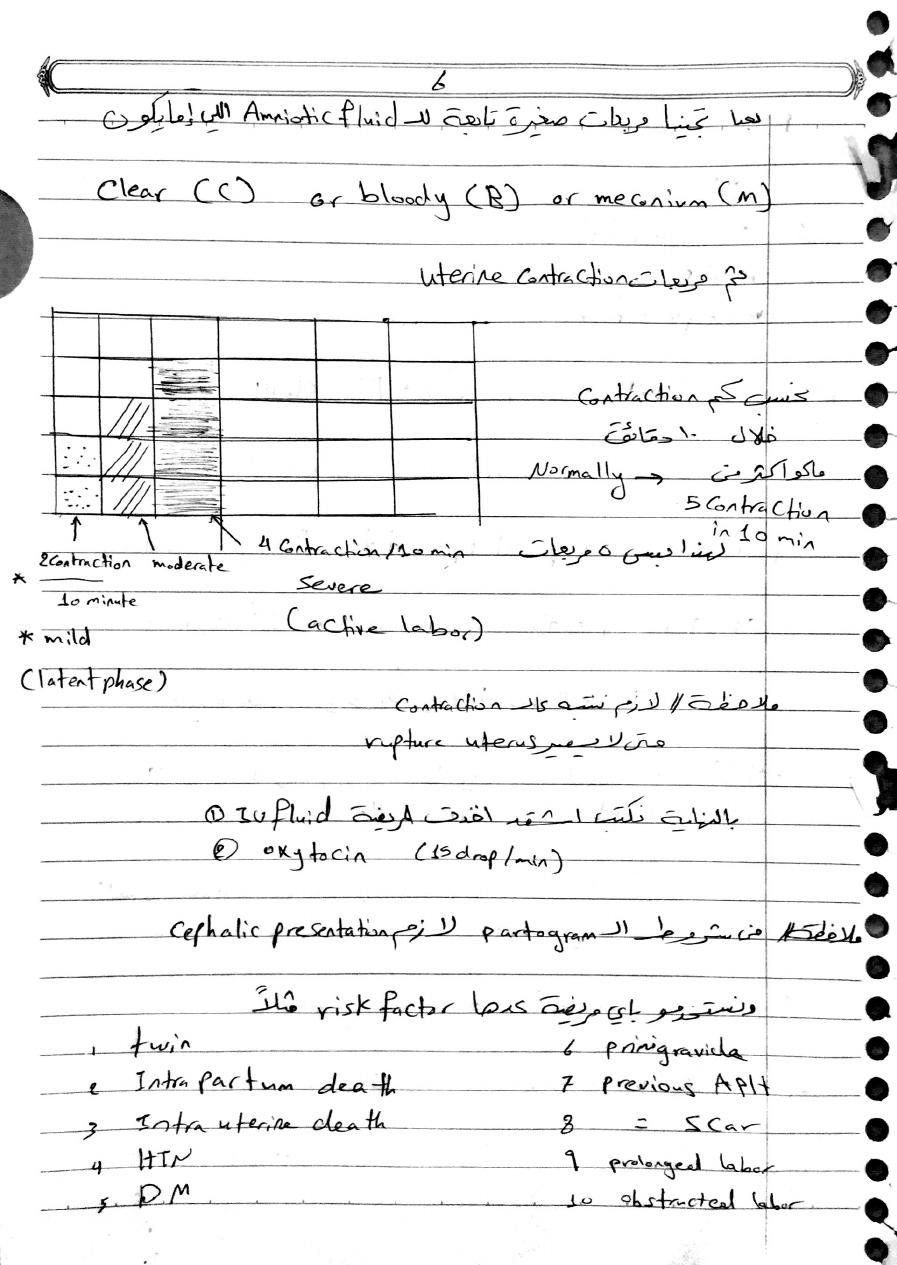 6
بعدها تجينا مربعات صغيرة تابعة لـ Amniotic fluid اللي إما يكون
Clear (C) or bloody (B) or meconium (M)
ثم مربعات uterine contraction
نحسب كم contraction
خلال ١٠ دقائق
ماكو اكثر من ← Normally
5 contraction
in 10 min
لهذا بس ٥ مربعات
2 contraction
10 minute
* mild
(latent phase)
moderate
4 contraction/10 min
severe
(active labor)
ملاحظة // لازم ننتبه عالـ contraction
حتى لا يصير rupture uterus
بالنهاية نكتب اشقد اخذت المريضة ① IV fluid
② oxytocin (15 drop/min)
ملاحظة // من شروط الـ partogram لازم cephalic presentation
ونستخدمو باي مريضة عدها risk factor مثلاً
1 twin
2 Intra partum death
3 Intra uterine death
4 HTN
5 DM
6 primigravida
7 previous APH
8 = Scar
9 prolonged labor
10 obstructed labor